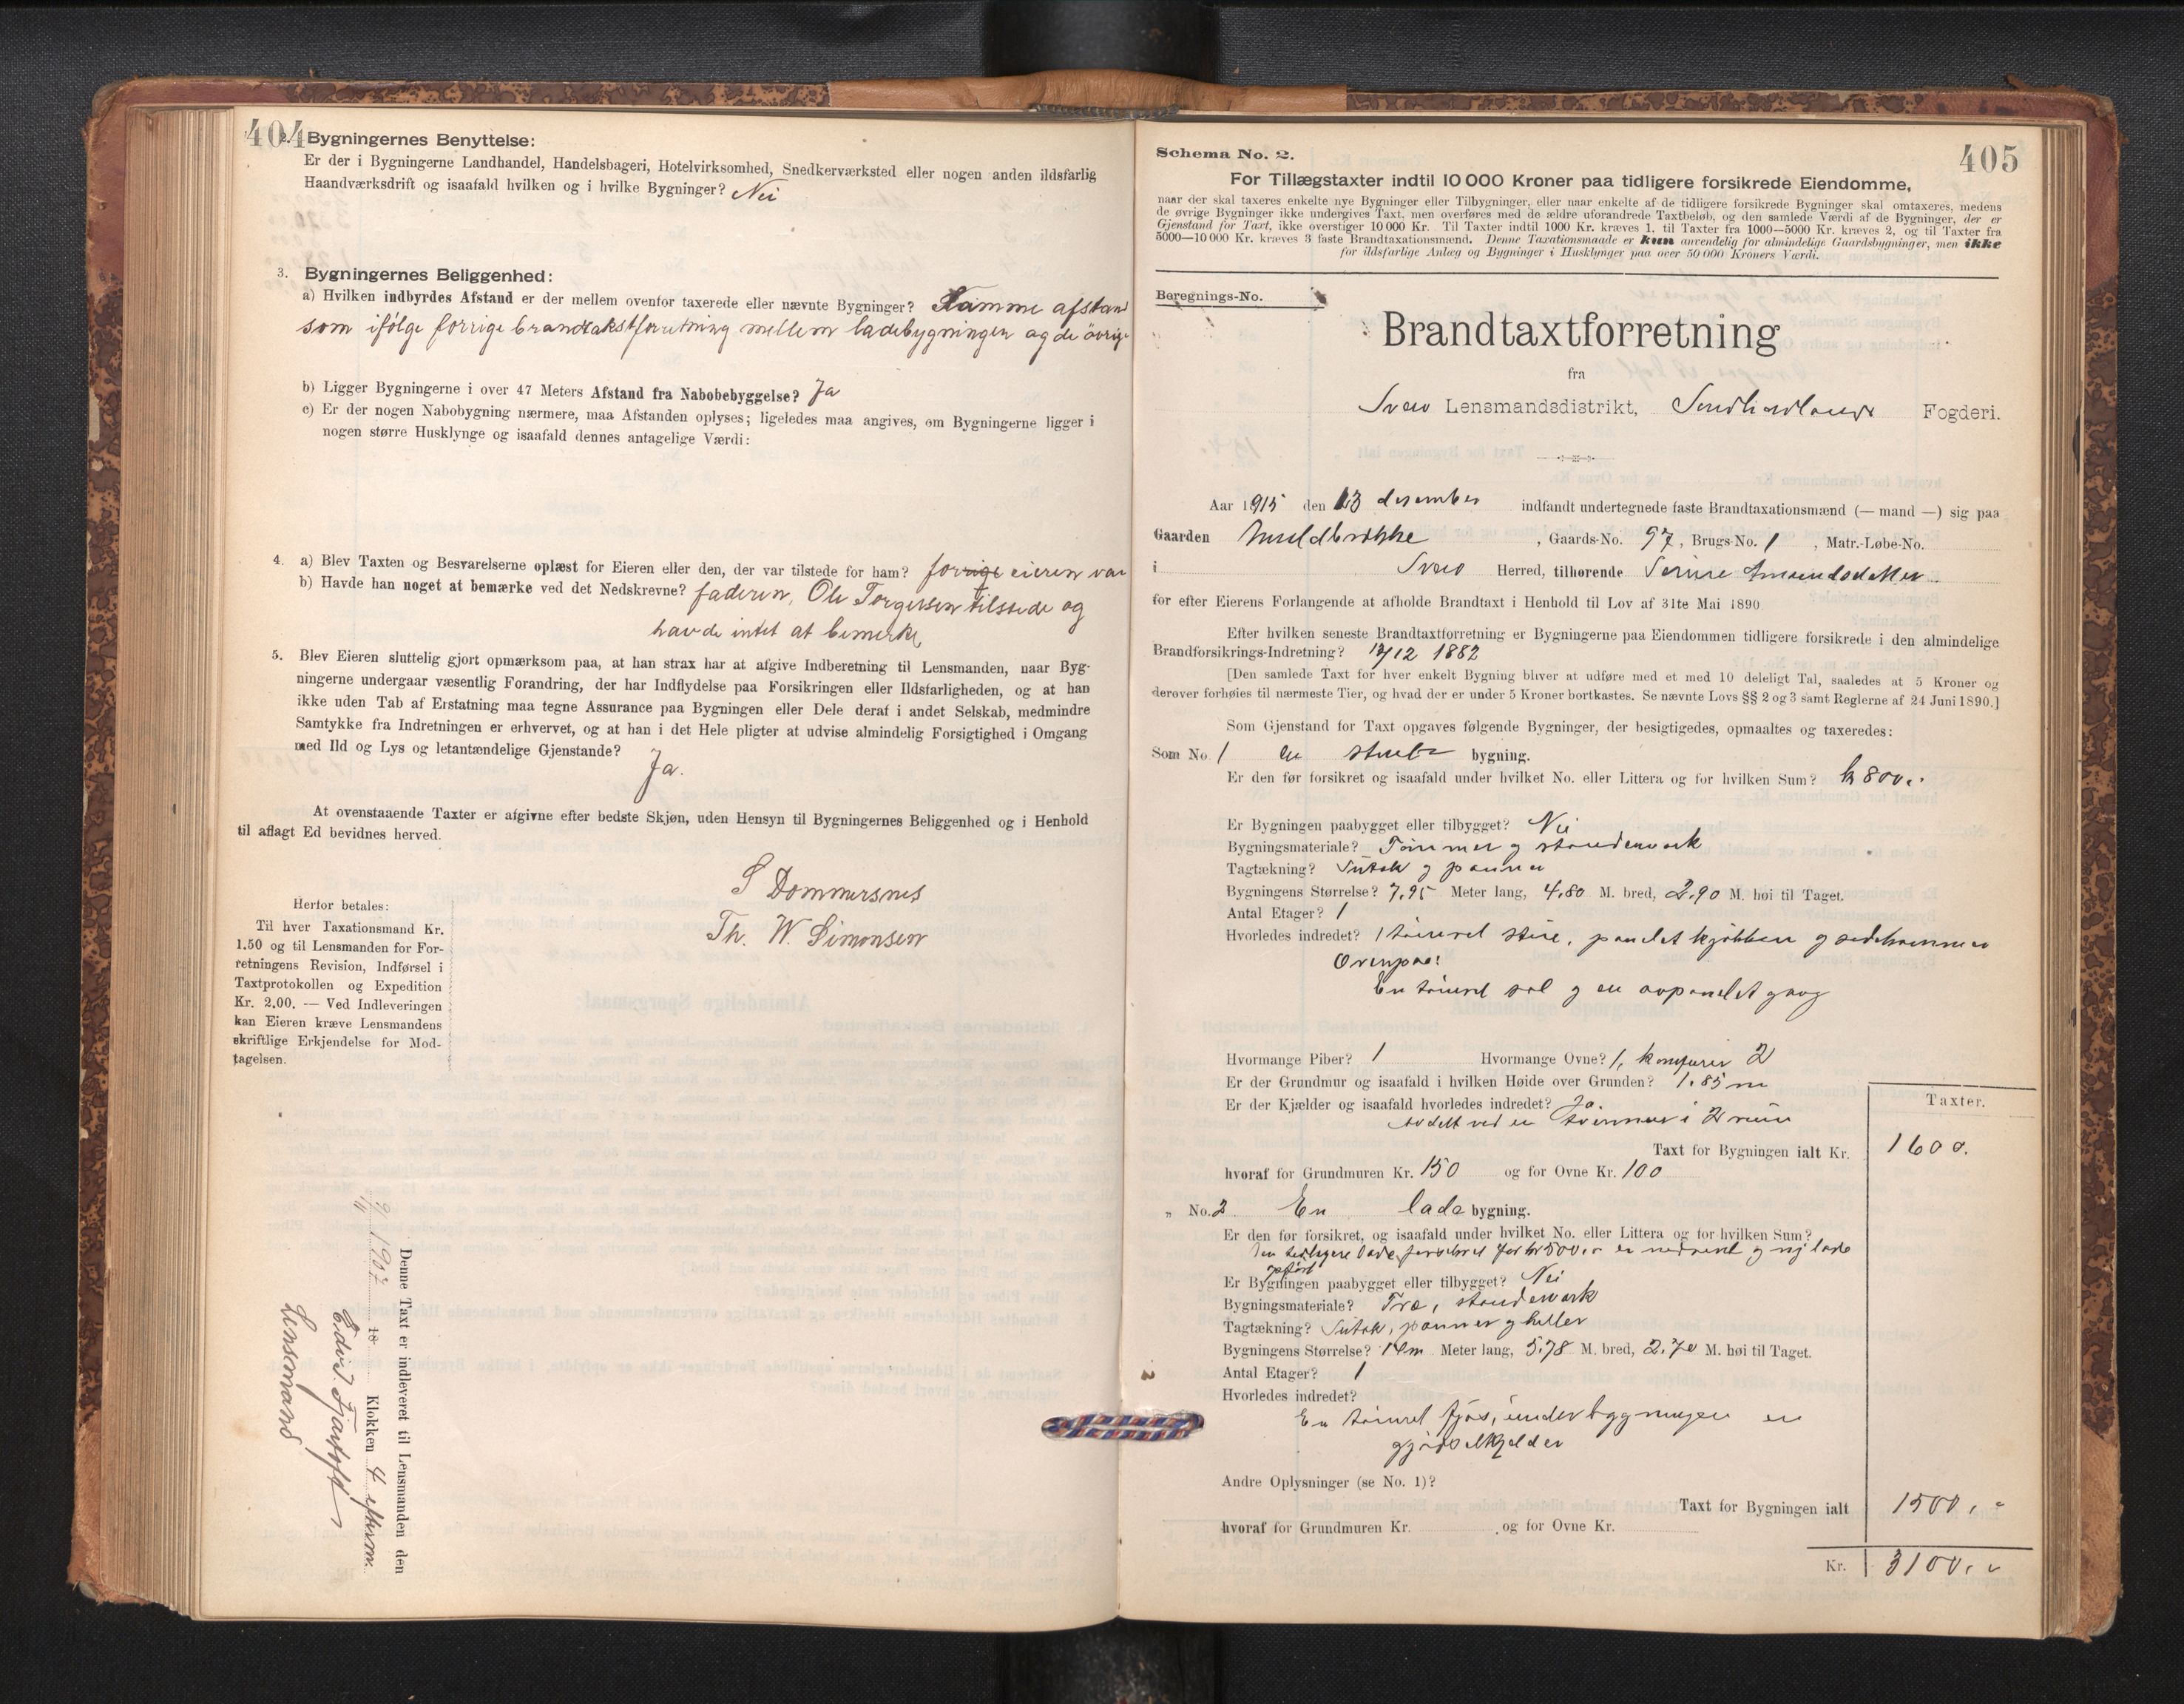 404
2. Bygningernes Benyttelse:
Er der i Bygningerne Landhandel, Handelsbageri, Hotelvirksomhed, Snedkerværksted eller nogen anden ildsfarlig
Haandværksdrift og isaafald hvilken og i hvilke Bygninger? Nei
3. Bygningernes Beliggenhed:
a) Hvilken indbyrdes Afstand er der mellem ovenfor taxerede eller nævnte Bygninger? Samme afstand
som ifølge forrige brandtakstforretning mellem ladebygningen og de övrige
b) Ligger Bygningerne i over 47 Meters Afstand fra Nabobebyggelse? Ja
c) Er der nogen Nabobygning nærmere, maa Afstanden oplyses; ligeledes maa angives, om Bygningerne ligger i
nogen større Husklynge og isaafald dennes antagelige Værdi:
4. a) Blev Taxten og Besvarelserne oplæst for Eieren eller den, der var tilstede for ham? forrige eieren var
b) Havde han noget at bemærke ved det Nedskrevne? faderen, Ole Torgersen tilstede og
havde intet at bemerke
5. Blev Eieren sluttelig gjort opmærksom paa, at han strax har at afgive Indberetning til Lensmanden, naar Byg-
ningerne undergaar væsentlig Forandring, der har Indflydelse paa Forsikringen eller Ildsfarligheden, og at han
ikke uden Tab af Erstatning maa tegne Assurance paa Bygningen eller Dele deraf i andet Selskab, medmindre
Samtykke fra Indretningen er erhvervet, og at han i det Hele pligter at udvise almindelig Forsigtighed i Omgang
med Ild og Lys og letantændelige Gjenstande? Ja.
At ovenstaaende Taxter er afgivne efter bedste Skjøn, uden Hensyn til Bygningernes Beliggenhed og i Henhold
til aflagt Ed bevidnes herved.
S Dommersnes
Th. W. Simonsen
Herfor betales:
Til hver Taxationsmand Kr.
1.50 og til Lensmanden for For-
retningens Revision, Indførsel i
Taxtprotokollen og Expedition
Kr. 2.00. — Ved Indleveringen
kan Eieren kræve Lensmandens
skriftlige Erkjendelse for Mod-
tagelsen.
Denne Taxt er indleveret til Lensmanden den
9/11 1907 18 Klokken 4 efterm.
Edvd. Fjærtoft
Lensmand
405
Schema No. 2.
For Tillægstaxter indtil 10 000 Kroner paa tidligere forsikrede Eiendomme,
naar der skal taxeres enkelte nye Bygninger eller Tilbygninger, eller naar enkelte af de tidligere forsikrede Bygninger skal omtaxeres, medens
de øvrige Bygninger ikke undergives Taxt, men overføres med de ældre uforandrede Taxtbeløb, og den samlede Værdi af de Bygninger, der er
Gjenstand for Taxt, ikke overstiger 10 000 Kr. Til Taxter indtil 1000 Kr. kræves 1, til Taxter fra 1000—5000 Kr. kræves 2, og til Taxter fra
5000—10 000 Kr. kræves 3 faste Brandtaxationsmænd. Denne Taxationsmaade er kun anvendelig for almindelige Gaardsbygninger, men ikke
for ildsfarlige Anlæg og Bygninger i Husklynger paa over 50 000 Kroners Værdi.
Beregnings-No.
Brandtaxtforretning
fra
Sveo Lensmandsdistrikt, Søndhordlands Fogderi.
Aar 1915 den 13 desember indfandt undertegnede faste Brandtaxationsmænd (— mand —) sig paa
Gaarden , Gaards-No. 97, Brugs-No. 1 , Matr.-Løbe-No.
i Sveo Herred, tilhørende Serine Amundsdatter
for efter Eierens Forlangende at afholde Brandtaxt i Henhold til Lov af 31te Mai 1890.
Efter hvilken seneste Brandtaxtforretning er Bygningerne paa Eiendommen tidligere forsikrede i den almindelige
Brandforsikrings-Indretning? 12/12 1882
[Den samlede Taxt for hver enkelt Bygning bliver at udføre med et med 10 deleligt Tal, saaledes at 5 Kroner og
derover forhøies til nærmeste Tier, og hvad der er under 5 Kroner bortkastes. Se nævnte Lovs §§ 2 og 3 samt Reglerne af 24 Juni 1890.]
Som Gjenstand for Taxt opgaves følgende Bygninger, der besigtigedes, opmaaltes og taxeredes:
Som No. 1 en stue bygning.
Er den før forsikret og isaafald under hvilket No. eller Littera og for hvilken Sum? kr 800,-
Er Bygningen paabygget eller tilbygget? Nei
Bygningsmateriale? Tømmer og standerverk
Tagtækning? Sutak og panner
Bygningens Størrelse? 7,95 Meter lang, 4,80 M. bred, 2,90 M. høi til Taget.
Antal Etager? 1
Hvorledes indredet? 1 tømret stue, panelet kjøkken og sidekammer
Ovenpaa:
En tømret sal og en avpanelet gang
Hvormange Piber? 1 Hvormange Ovne? 1, komfurer 2
Er der Grundmur og isaafald i hvilken Høide over Grunden? 1,85 m
Er der Kjælder og isaafald hvorledes indredet? Ja.
avdelt ved en tvermur i 2 rum
Taxter.
Taxt for Bygningen ialt Kr. 1600.
hvoraf for Grundmuren Kr. 150 og for Ovne Kr. 100
" No. 2 En lade bygning.
Er den før forsikret, og isaafald under hvilket No. eller Littera og for hvilken Sum?
Den tidligere lade, forsikret for kr 500,- er nedrevet og ny lade
opført
Er Bygningen paabygget eller tilbygget? Nei
Bygningsmateriale? Træ, standerverk
Tagtækning? Sutak, panner og heller
Bygningens Størrelse? Meter lang, 5,78 M. bred, 2,70 M. høi til Taget.
Antal Etager? 1
Hvorledes indredet?
En tømret fjøs, under bygningen en
gjødselkjelder
Andre Oplysninger (se No. 1)?
Taxt for Bygningen ialt 1500,-
hvoraf for Grundmuren Kr. og for Ovne Kr.
Kr. 3100,-